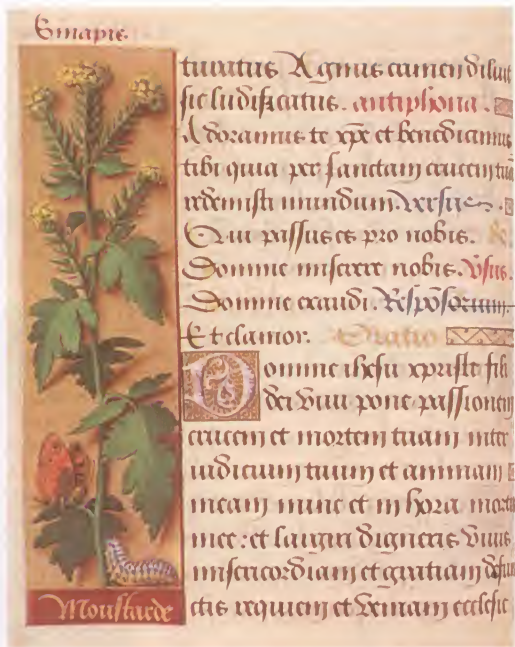 Sinapis
tutatus Agnus crimen diluit
sic ludificatus. antiphona.
Adoramus te xpe et benedicimus
tibi quia per sanctam crucem tua
redemisti mundum. versus
Qui passus es pro nobis.
Domine miserere nobis. vsus.
Domine exaudi. Responsorium.
Et clamor. Oratio
Domine ihesu xpriste fili
dei viui pone passionem
crucem et mortem tuam inter
iudicium tuum et animam
meam nunc et in hora mortis
mee: et largiri digneris viuis
misericordiam et gratiam defun
ctis requiem et veniam ecclesie
Moustarde